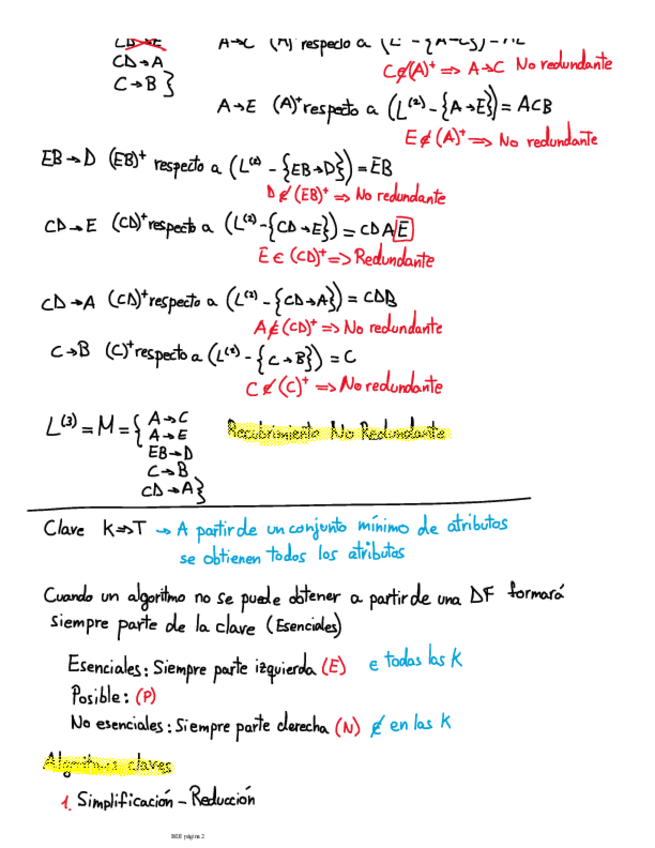 CD→E
CD→A
C→B}
A→C (A)⁺ respecto a (L
C∉(A)⁺ ⇒ A→C No redundante
A→E (A)⁺ respecto a (L⁽²⁾ - {A→E}) = ACB
E∉(A)⁺ ⇒ No redundante
EB→D (EB)⁺ respecto a (L⁽²⁾ - {EB→D}) = EB
D∉(EB)⁺ ⇒ No redundante
CD→E (CD)⁺ respecto a (L⁽²⁾ - {CD→E}) = CDAE
E∈(CD)⁺ ⇒ Redundante
CD→A (CD)⁺ respecto a (L⁽²⁾ - {CD→A}) = CDB
A∉(CD)⁺ ⇒ No redundante
C→B (C)⁺ respecto a (L⁽²⁾ - {C→B}) = C
C∉(C)⁺ ⇒ No redundante
L⁽³⁾ = M = { A→C
A→E
EB→D
C→B
CD→A}
Recubrimiento No Redundante
Clave K⇒T → A partir de un conjunto mínimo de atributos
se obtienen todos los atributos
Cuando un algoritmo no se puede obtener a partir de una DF formará
siempre parte de la clave (Esenciales)
Esenciales: Siempre parte izquierda (E) e todas las K
Posible: (P)
No esenciales: Siempre parte derecha (N) ∉ en las K
Algoritmos claves
1. Simplificación - Reducción
BDII página 2